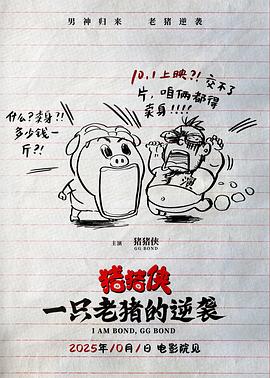 男神归来 老猪逆袭
10.1上映?! 交不了
片,咱俩都得
卖身!!!!
什么?卖身?!
多少钱一
斤?!
演
主演 猪猪侠
GG BOND
猪猪侠
一只老猪的逆袭
I AM BOND, GG BOND
2025年10月1日 电影院见